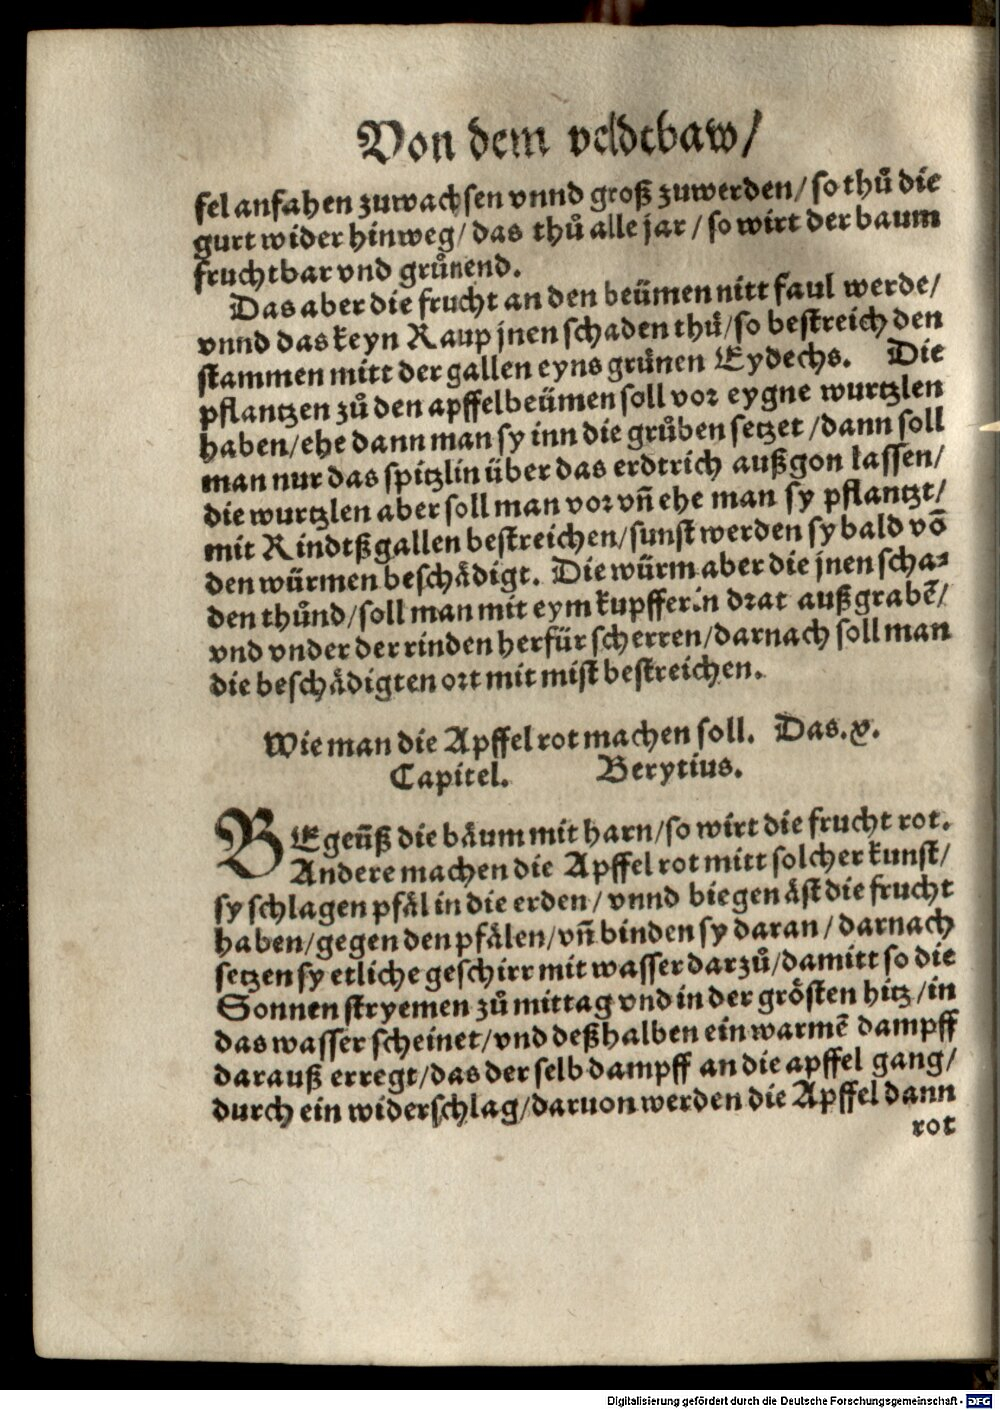 Von dem veldtbaw/
fel anfahen zuwachsen vnnd groß zuwerden/ so thů die
gurt wider hinweg/ das thů alle jar / so wirt der baum
fruchtbar vnd grůnend.
Das aber die frucht an den beümen nitt faul werde/
vnnd das keyn Raup jnen schaden thů/ so bestreich den
stammen mitt der gallen eyns grůnen Eydechs. Die
pflantzen zů den apffelbeümen soll vor eygne wurtzlen
haben/ ehe dann man sy inn die grůben setzet / dann soll
man nur das spitzlin über das erdtrich außgon lassen/
die wurtzlen aber soll man vor vñ ehe man sy pflantzt/
mit Rindtßgallen bestreichen/ sunst werden sy bald vō
den würmen beschädigt. Die würm aber die jnen scha⸗
den thůnd/ soll man mit eym kupfferin drat außgrabē/
vnd vnder der rinden herfür scherren/ darnach soll man
die beschädigten ort mit mist bestreichen.
Wie man die Apffel rot machen soll. Das .x.
Capitel. Berytius.
BEgeüß die bäum mit harn/ so wirt die frucht rot.
Andere machen die Apffel rot mitt solcher kunst/
sy schlagen pfäl in die erden / vnnd biegen äst die frucht
haben/ gegen den pfälen/ vñ binden sy daran / darnach
setzen sy etliche geschirr mit wasser darzů/ damitt so die
Sonnen stryemen zů mittag vnd in der grösten hitz / in
das wasser scheinet/ vnd deßhalben ein warmē dampff
darauß erregt/ das der selb dampff an die apffel gang/
durch ein widerschlag/ daruon werden die Apffel dann
rot
Digitalisierung gefördert durch die Deutsche Forschungsgemeinschaft - DFG